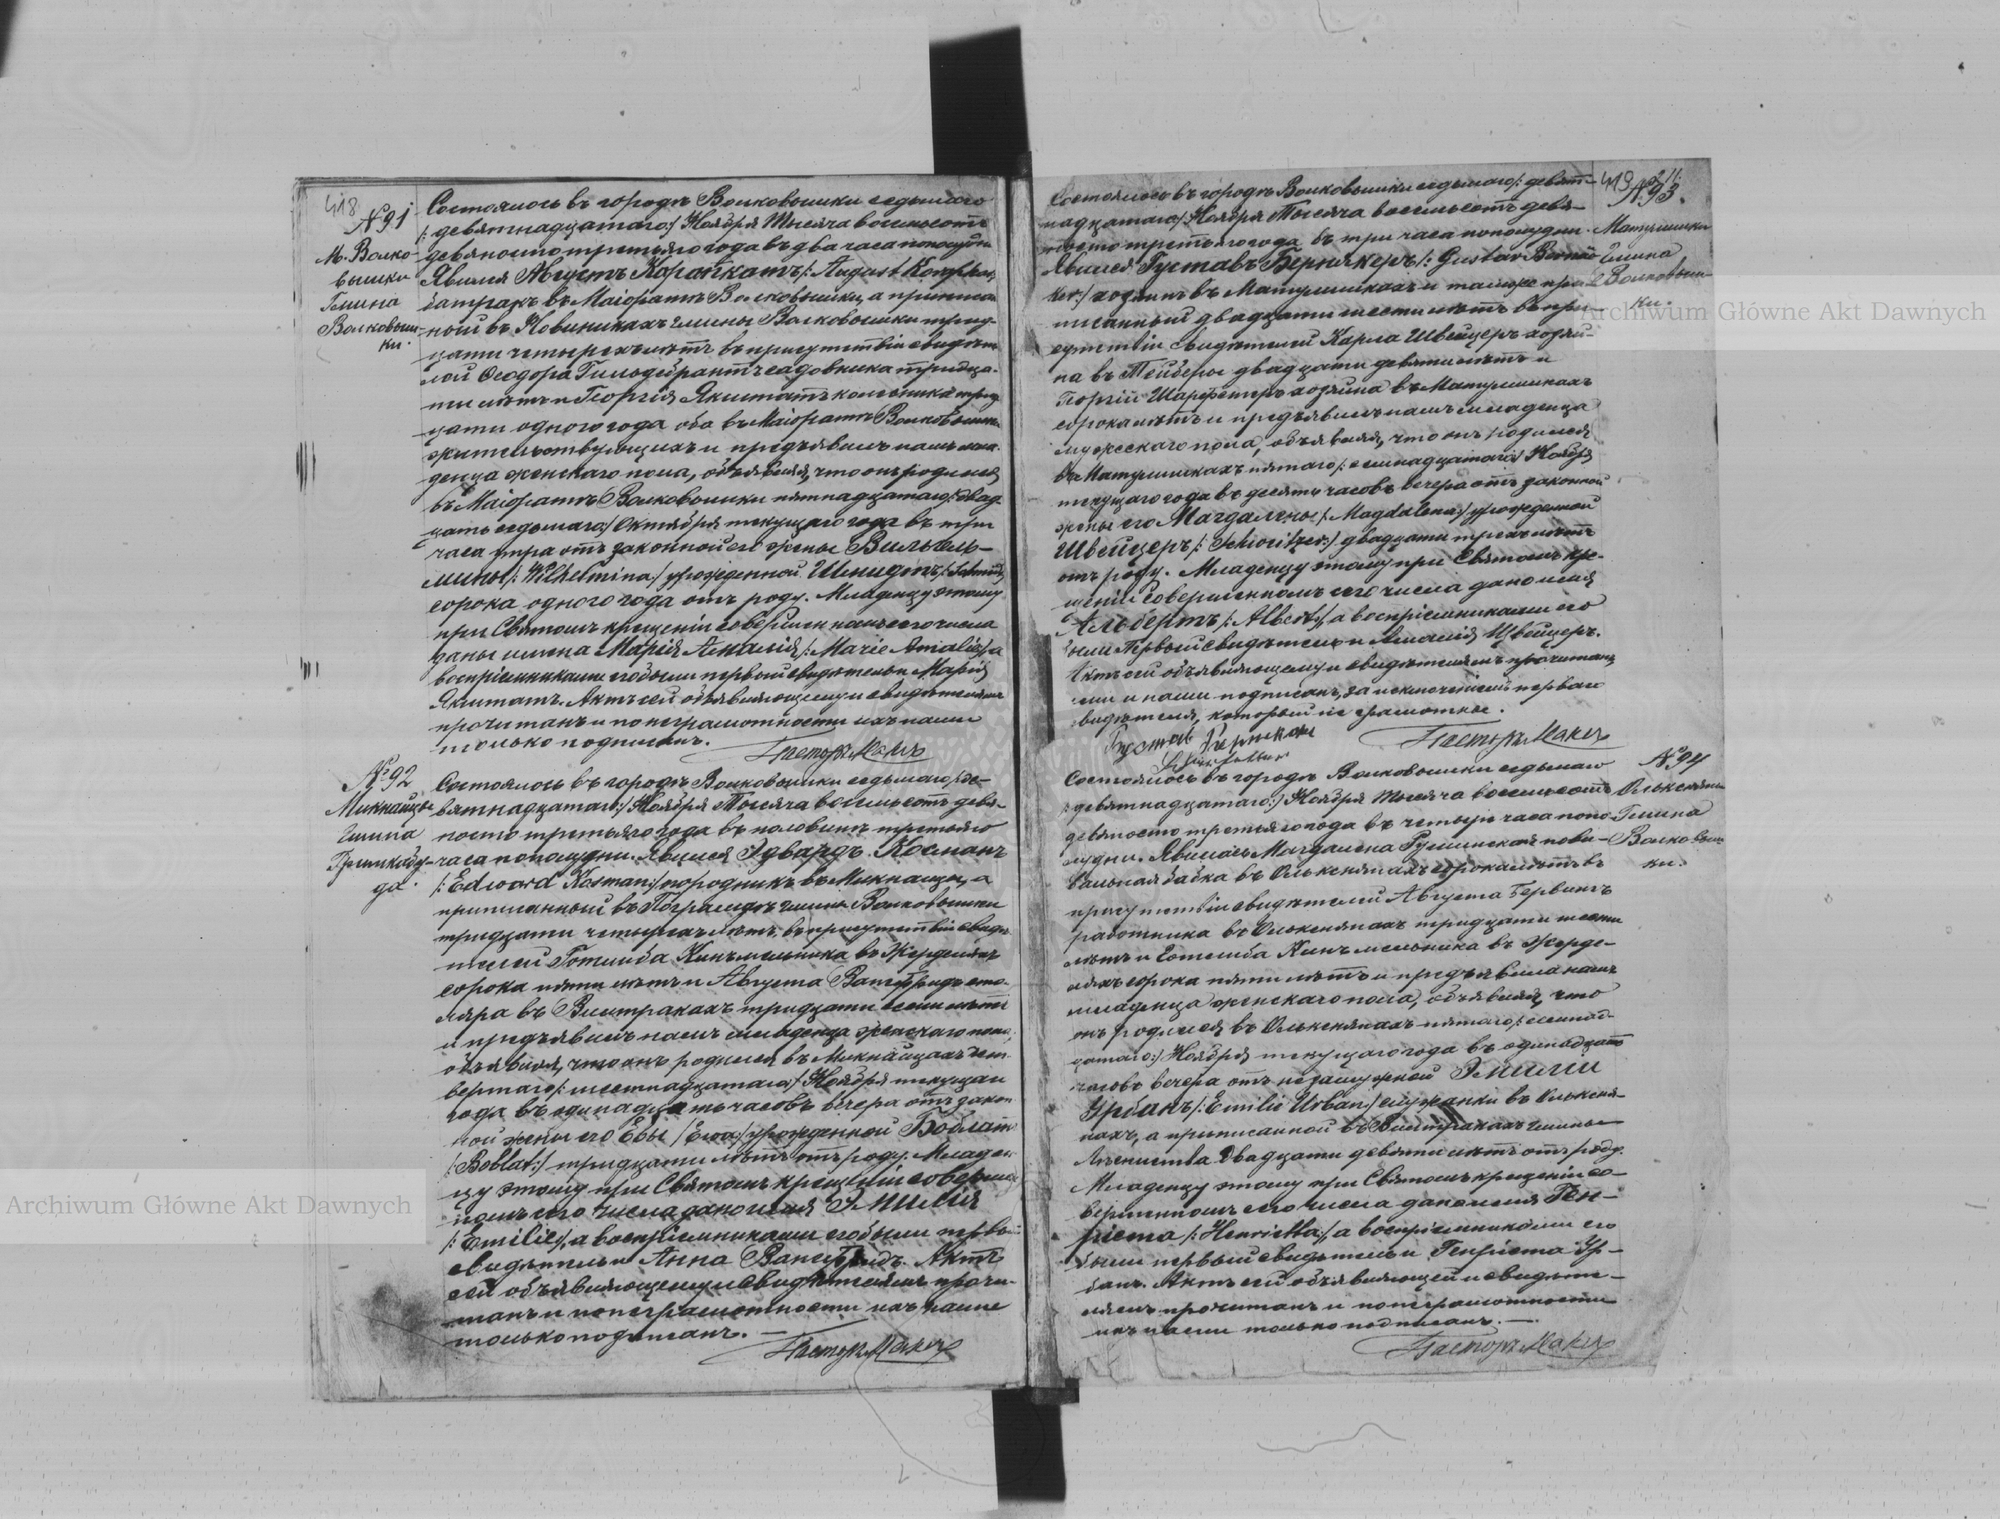 418
№91
М. Волко-
вышки
Гмина
Волковыш-
ки.
Состоялось въ городѣ Волковышки седьмаго
/: девятнадцатаго:/ Ноября Тысяча восемьсотъ
девяносто третьяго года въ два часа пополудни
Явился Августъ /: August
батракъ въ Маіоратѣ Волковышки, а приписан
ный въ Новиникахъ гмины Волковышки трид-
цати четырехъ лѣтъ, въ присутствіи свидѣте
лей Ѳеодора Гильдебрантъ садовника тридца-
ти лѣтъ и Георгія Якштатъ конюшника трид
цати одного года оба въ Маіоратѣ Волковышки
жительствующихъ и предъявилъ намъ мла
денца женскаго пола, объявляя, что онъ родился
въ Маіоратѣ Волковышки пятнадцатаго/:двад
цать седьмаго:/ Октября текущаго года въ три
часа утра отъ законной его жены Вильгель-
мины /: Wilhelmina:/ урожденной Шмидтъ /: Schmidt
сорока одного года отъ роду. Младенцу этому
при Святомъ крещеніи совершенномъ сего числа
даны имена Марія Амалія /: Marie Amalie:/ а
воспріемниками его были первый свидѣтель и Марія
Якштатъ. Актъ сей объявляющему и свидѣтелямъ
прочитанъ и по неграмотности ихъ нами
только подписанъ.
Пасторъ
№92
Микнайцы
Гмина

да.
Состоялось въ городѣ Волковышки седьмаго /:де-
вятнадцатаго:/ Ноября Тысяча восемьсотъ девя-
носто третьяго года въ половинѣ третьяго
часа пополудни. Явился Эдвардъ Косманъ
/: Edward Kosman:/ породникъ въ Микнайцы, а
приписанный въ гмины Волковышки
тридцати четырехъ лѣтъ, въ присутствіи свидѣ
телей Готлиба Кинъ мельника въ
сорока пяти лѣтъ и Августа Вансфридъ сто-
ляра въ Виштракахъ тридцати семи лѣтъ
и предъявилъ намъ младенца женскаго пола,
объявляя, что онъ родился въ Микнайцахъ чет-
вертаго /: шестнадцатаго:/ Ноября текущаго
года въ одинадцать часовъ вечера отъ закон
ной жены его Евы /: Ewa:/ урожденной Боблатъ
/: Boblat:/ тридцати лѣтъ отъ роду. Младен
цу этому при Святомъ крещеніи совершен
номъ сего числа дано имя Эмилія
/: Emilie:/, а воспріемниками его были первый
свидѣтель и Анна Вансфридъ. Актъ
сей объявляющему и свидѣтелямъ прочи-
танъ и по неграмотности ихъ нами
только подписанъ. —
Пасторъ
419
№93.
Матулишки
Гмина
Волковыш-
ки.
Состоялось въ городѣ Волковышки седьмаго /: девят-
надцатаго:/ Ноября Тысяча восемьсотъ девя-
носто третьяго года въ три часа пополудни.
Явился Густавъ Бернекеръ /: Gustav Berne
ker:/ хозяинъ въ Матулишкахъ и тамже при
писанный двадцати шести лѣтъ въ при-
сутствіи свидѣтелей Карла Швейцеръ хозяи-
на въ двадцати девяти лѣтъ и
Георгія Шарфетеръ хозяина въ Матулишкахъ
сорока лѣтъ и предъявилъ намъ младенца
мужескаго пола, объявляя, что онъ родился
въ Матулишкахъ пятаго /: семнадцатаго:/ Ноября
текущаго года въ десять часовъ вечера отъ законной
жены его Магдалены /: Magdalena:/ урожденной
Швейцеръ /: Schweitzer:/ двадцати трехъ лѣтъ
отъ роду. Младенцу этому при Святомъ кре-
щеніи совершенномъ сего числа дано имя
Альбертъ /: Albert:/, а воспріемниками его
были первый свидѣтель и Амалія Швейцеръ.
Актъ сей объявляющему и свидѣтелямъ прочитанъ
ими и нами подписанъ, за исключеніемъ перваго
свидѣтеля, который не грамотный.
Густав
Пасторъ
№94
Олькеняны
Гмина
Волковыш-
ки.
Состоялось въ городѣ Волковышки седьмаго
/: девятнадцатаго:/ Ноября тысяча восемьсотъ
девяносто третьяго года въ четыре часа попо-
лудни. Явилась Магдалена повиваль-
ная бабка въ сорока лѣтъ въ
присутствіи свидѣтелей Августа Гервинъ
работника въ тридцати шести
лѣтъ и Готлиба Кинъ мельника въ
сорока пяти лѣтъ и предъявила намъ
младенца женскаго пола, объявляя, что
онъ родился въ пятаго /: семнад-
цатаго:/ Ноября текущаго года въ одинадцать
часовъ вечера отъ незамужной Эмиліи
Урбанъ /: Emilie Urban:/ служанки въ
а приписанной въ Виштракахъ гмины
двадцати девяти лѣтъ отъ роду.
Младенцу этому при Святомъ крещеніи со-
вершенномъ сего числа дано имя Ген-
ріета /: Henrietta:/, а воспріемниками его
были первый свидѣтель и Генріета Ур-
банъ. Актъ сей объявляющей и свидѣте-
лямъ прочитанъ и по неграмотности
ихъ нами только подписанъ. —
Пасторъ
Archiwum Główne Akt Dawnych
Archiwum Główne Akt Dawnych